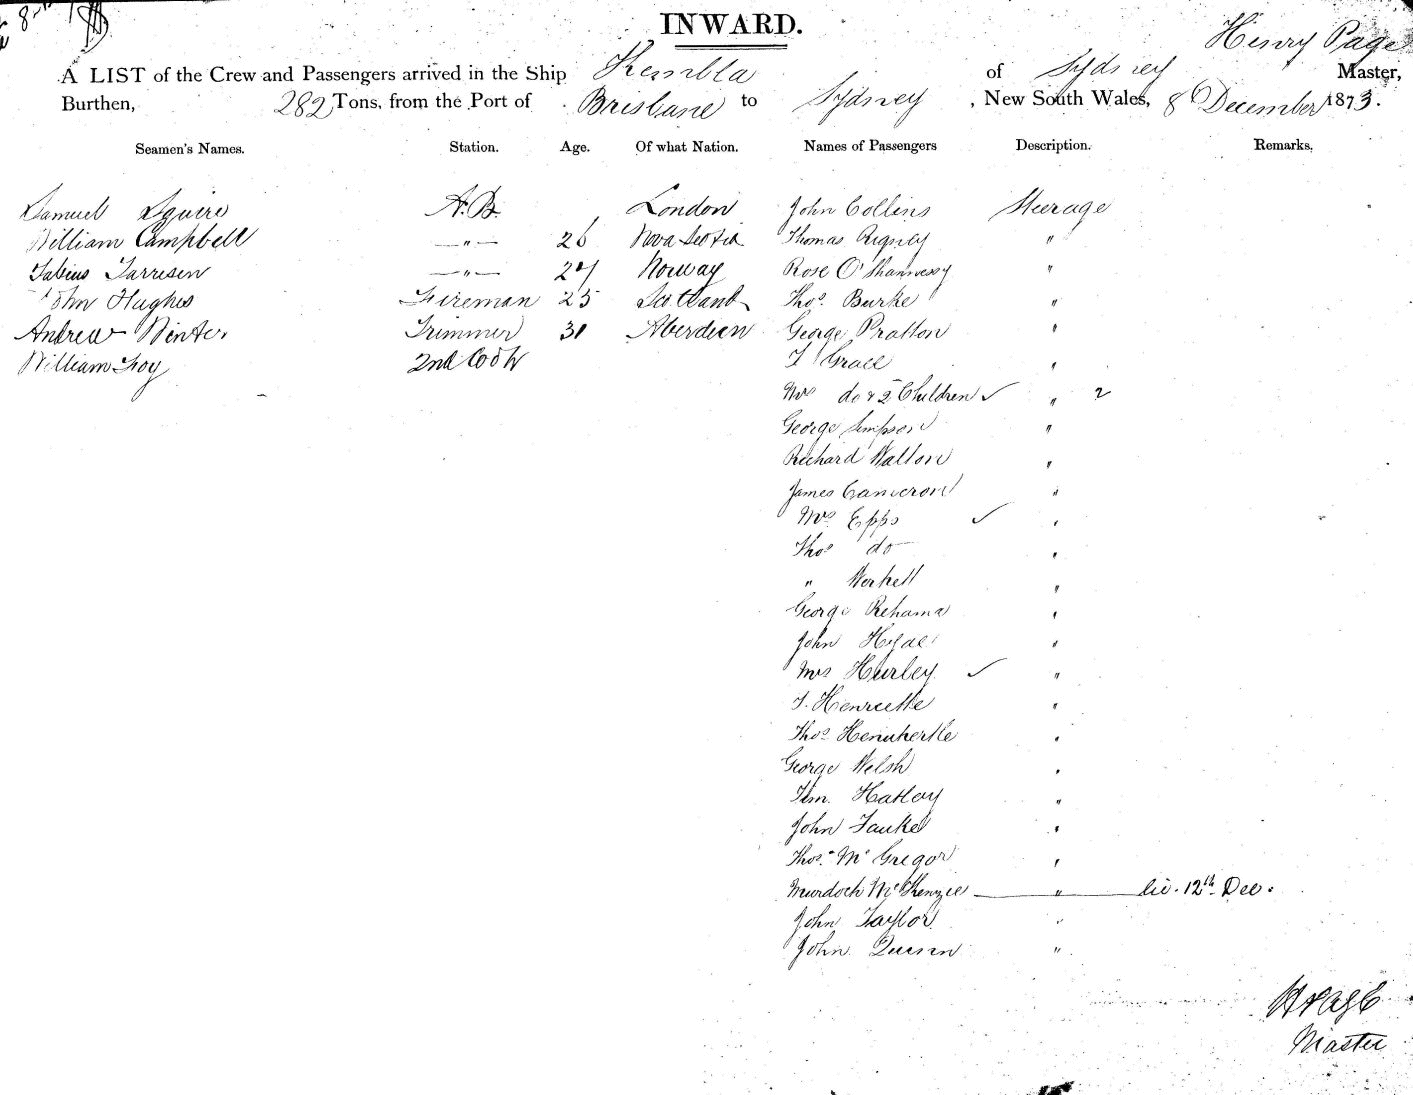 8
INWARD.
Henry Page
A LIST of the Crew and Passengers arrived in the Ship Kembla of Sydney Master,
Burthen, 282 Tons, from the Port of Brisbane to Sydney, New South Wales, 8 December 1873.
Seamen's Names. Station. Age. Of what Nation. Names of Passengers Description. Remarks.
Samuel Squire A.B. London John Collins Steerage
William Campbell —"— 26 Nova Scotia Thomas Rigney "
—"— 27 Norway Rose O'Shannessy "
John Hughes Fireman 25 Scotland Thos. Burke "
Andrew Winter Trimmer 31 Aberdeen George Pratton "
William Foy 2nd Cook Grace "
Mrs do & 2 Children ✓ " 2
George Simpson "
Richard Walton "
James Cameron "
Mrs. Epps ✓ "
Thos do "
" "
George Rehama "
John Hyde "
Mrs Hurley ✓ "
"
Thos. "
George Welsh "
"
John "
Thos. Mc Gregor "
Murdoch McKenzie — " — 12th Dec.
John Taylor "
John Quinn "
H Page
Master